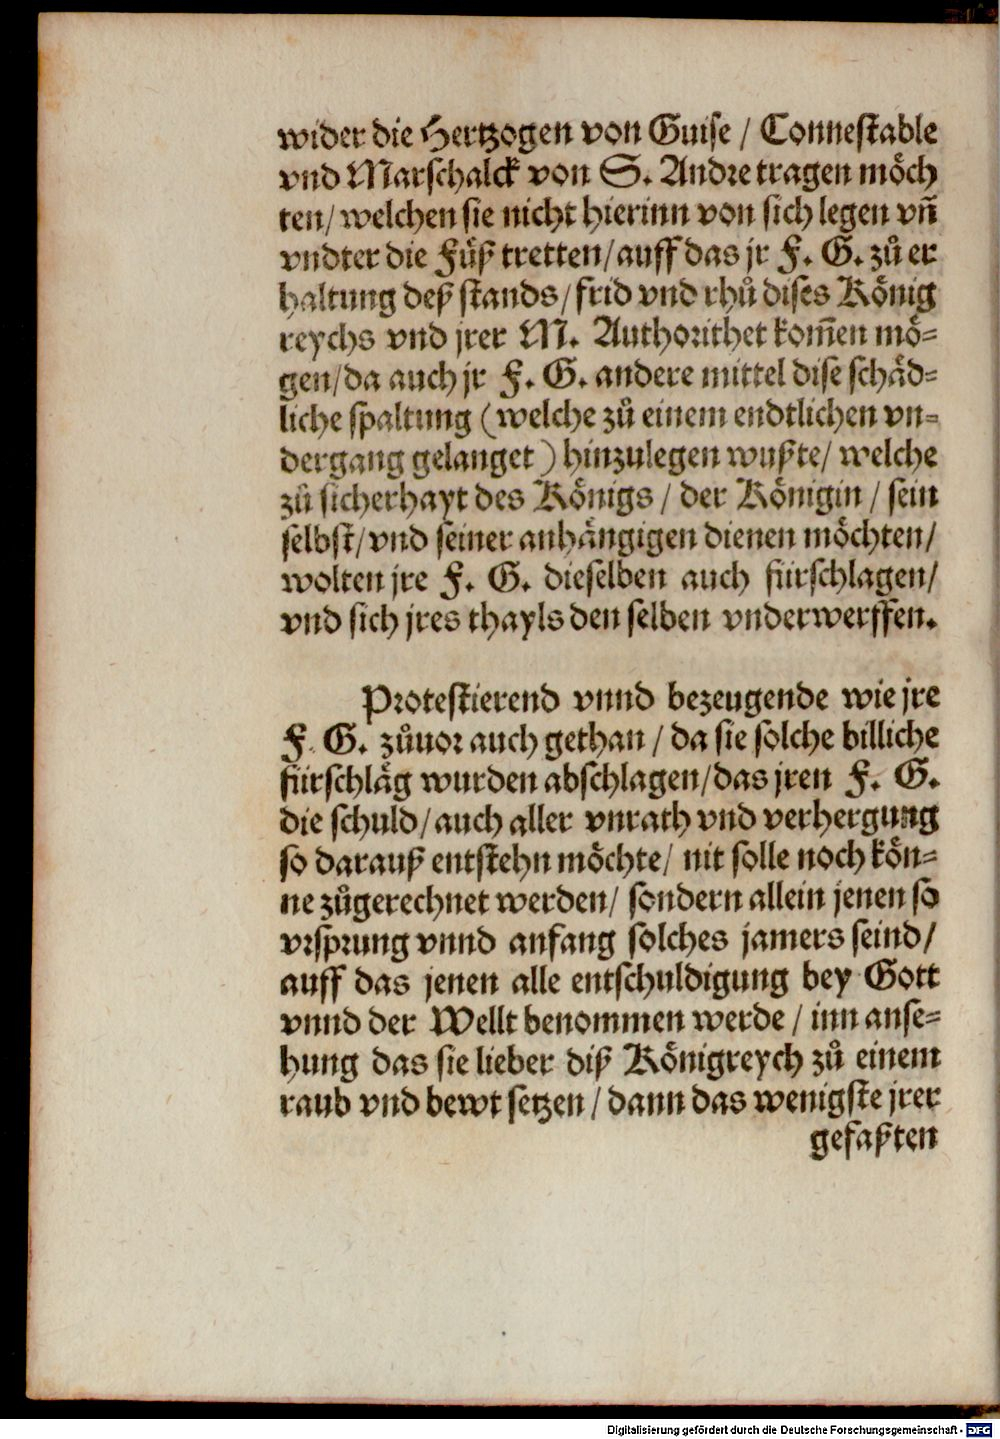 wider die Hertzogen von Guise / Connestable
vnd Marschalck von S. Andre tragen möch
ten/ welchen sie nicht hierinn von sich legen vñ
vndter die Füß tretten/auff das jr F. G. zů er
haltung deß stands/ frid vnd rhů dises König
reychs vnd jrer M. Authorithet kom̃en mö-
gen/da auch jr F. G. andere mittel dise schäd-
liche spaltung (welche zů einem endtlichen vn-
dergang gelanget) hinzulegen wußte/ welche
zů sicherhayt des Königs / der Königin / sein
selbst/ vnd seiner anhängigen dienen möchten/
wolten jre F. G. dieselben auch fürschlagen/
vnd sich jres thayls den selben vnderwerffen.
Protestierend vnnd bezeugende wie jre
F. G. zůuor auch gethan / da sie solche billiche
fürschläg wurden abschlagen/das jren F. G.
die schuld/ auch aller vnrath vnd verhergung
so darauß entstehn möchte/ nit solle noch kön-
ne zůgerechnet werden/ sondern allein jenen so
vrsprung vnnd anfang solches jamers seind/
auff das jenen alle entschuldigung bey Gott
vnnd der Wellt benommen werde / inn anse-
hung das sie lieber diß Königreych zů einem
raub vnd bewt setzen / dann das wenigste jrer
gefaßten
Digitalisierung gefördert durch die Deutsche Forschungsgemeinschaft - DFG